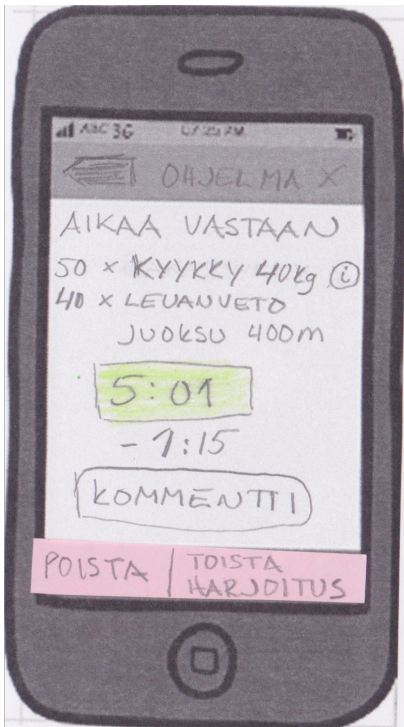 ABC 3G
OHJELMA X
AIKAA VASTAAN
50 x KYYKKY 40kg i
40 x LEUANVETO
JUOKSU 400m
5:01
- 1:15
KOMMENTTI
POISTA | TOISTA
HARJOITUS